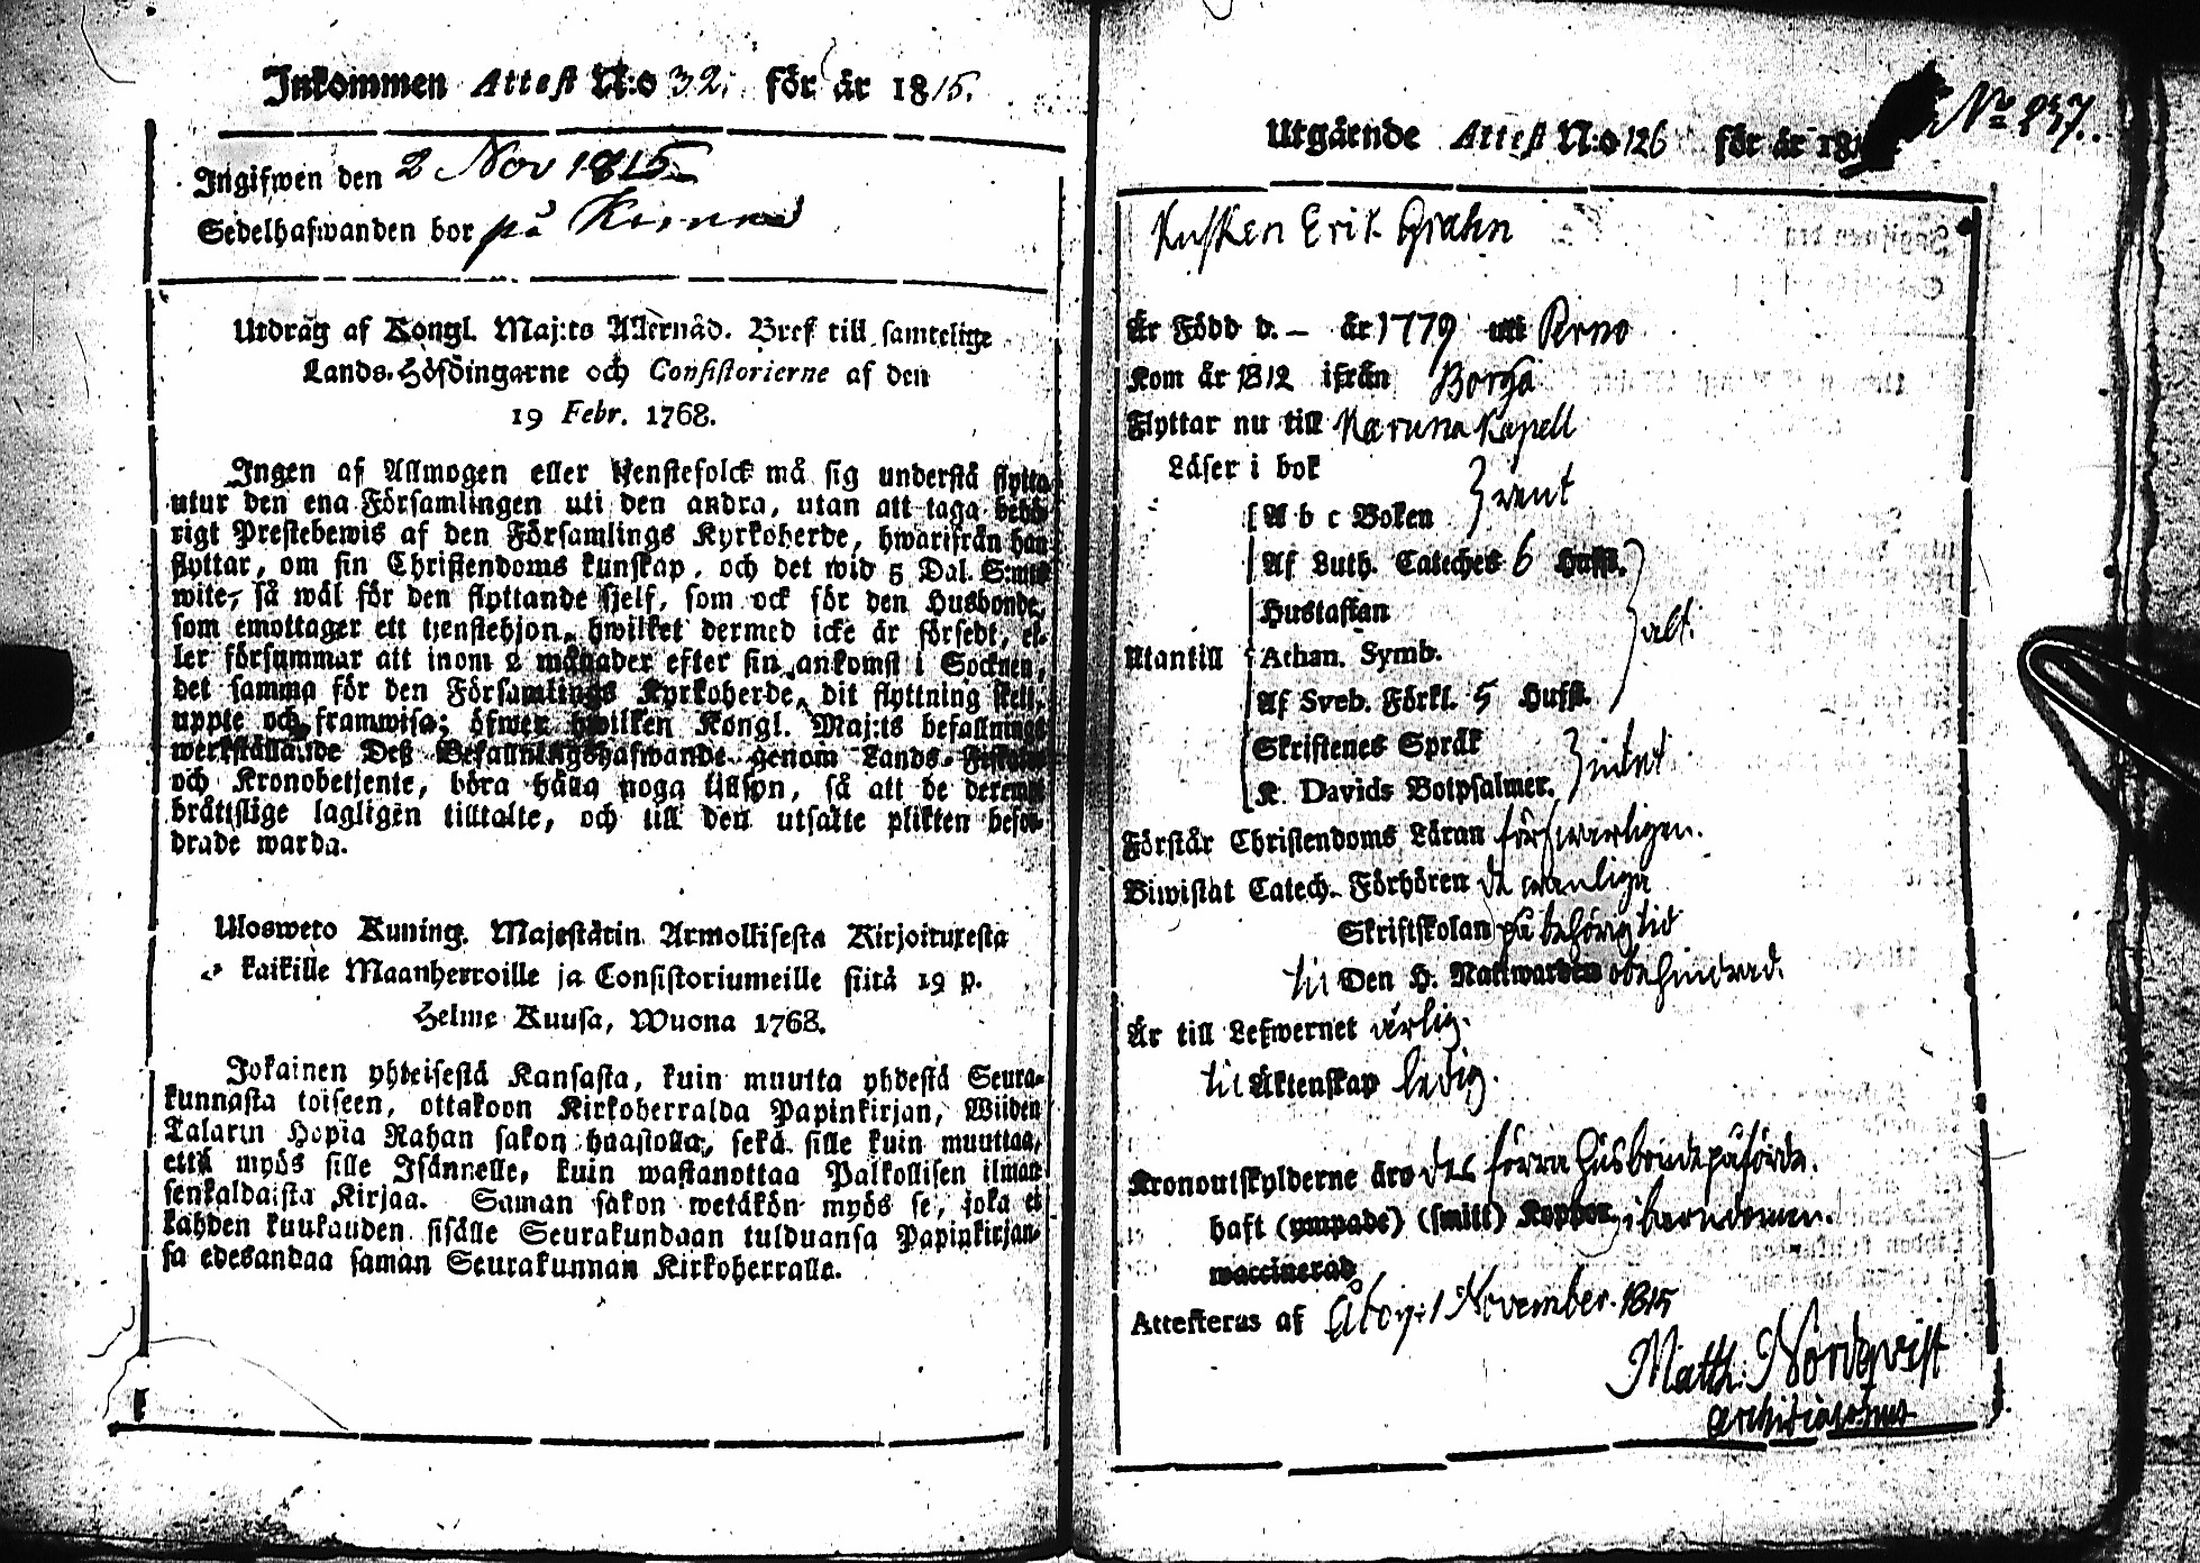 Inkommen Attest N:o 32. för år 1815.
Ingifwen den 2 Nov 1815
Sedelhafwanden bor på
Utdrag af Kongl. Maj:ts Allernåd. Bref till samtelige
Lands-Höfdingarne och Consistorierne af den
19 Febr. 1768.
Ingen af Allmogen eller tjenstefolck må sig understå flytta
utur den ena Församlingen uti den andra, utan att taga behö-
rigt Prestebewis af den Församlings Kyrkoherde, hwarifrån han
flyttar, om sin Christendoms kunskap, och det wid 5 Dal. S:mts
wite, så wäl för den flyttande sjelf, som ock för den Husbonde,
som emottager ett tjenstehjon, hwilket dermed icke är försedt, el-
ler försummar att inom 2 månader efter sin ankomst i Socknen,
det samma för den Församlings Kyrkoherde, dit flyttning skett,
uppte och framwisa; öfwer hwilken Kongl. Maj:ts befallnings
werkställande Deß Befallningshafwande genom Lands-Fiskaler
och Kronobetjente, böra hålla noga tillsyn, så att de deremot
bråttslige lagligen tilltalte, och till den utsatte plikten befor-
drade warda.
Ulosweto Kuning. Majestätin Armollisesta Kirjoituxesta
kaikille Maanherroille ja Consistoriumeille siitä 19 p.
Helme Kuusa, Wuona 1768.
Jokainen yhteisestä Kansasta, kuin muutta yhdestä Seura-
kunnasta toiseen, ottakoon Kirkoherralda Papinkirjan, Wiiden
Talarin Hopia Rahan sakon haastolla, sekä sille kuin muuttaa,
että myös sille Isännelle, kuin wastanottaa Palkollisen ilman
senkaldaista Kirjaa. Saman sakon wetäkön myös se, joka ei
kahden kuukauden sisälle Seurakundaan tulduansa Papinkirjan-
sa edesandaa saman Seurakunnan Kirkoherralle.
Utgående Attest N:o 126 för år 18 No 237.
Kusken Erik Grahn
Är Född d. – år 1779 uti Perno
Kom år 1812 ifrån Borgå
Flyttar nu till Karuna Kapell
Läser i bok
rent
A b c Boken
Af Luth. Cateches 6 Hufst.
Hustaflan
alt.
Utantill Athan. Symb.
Af Sveb. Förkl. 5 Hufst.
Skriftenes Språk
intet
K. Davids Botpsalmer.
Förstår Christendoms Läran förswarligen.
Biwistat Catech. Förhören de wanliga
Skriftskolan på behörig tid
til Den H. Nattwarden obehindrad.
Är till Lefwernet ärlig.
til Äktenskap ledig.
Kronoutskylderne äro des förra husbonde påförde.
haft (ympade) (smitt) Koppor, i barndomen.
waccinerad
Attesteras af Åbo, 1 November. 1815
Matth: Nordqvist
archidiaconus